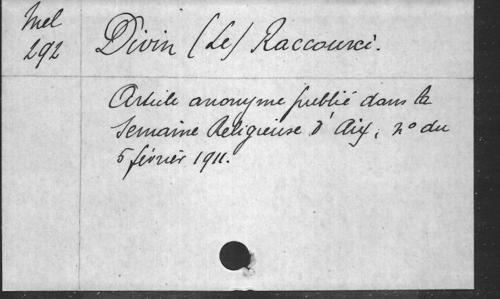 Mel
292
Divin (Le) Raccourci.
Article anonyme publié dans la
Semaine Religieuse d'Aix, no du
5 février 1911.